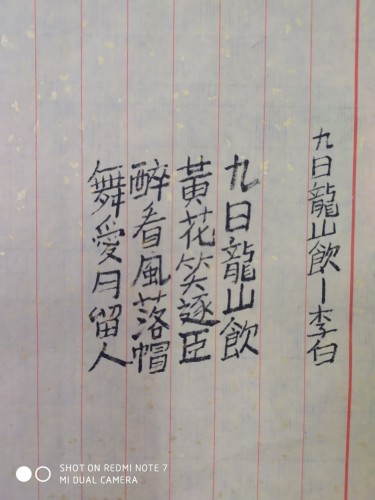 九日龍山飲－李白
九日龍山飲
黃花笑逐臣
醉看風落帽
舞愛月留人
SHOT ON REDMI NOTE 7
MI DUAL CAMERA